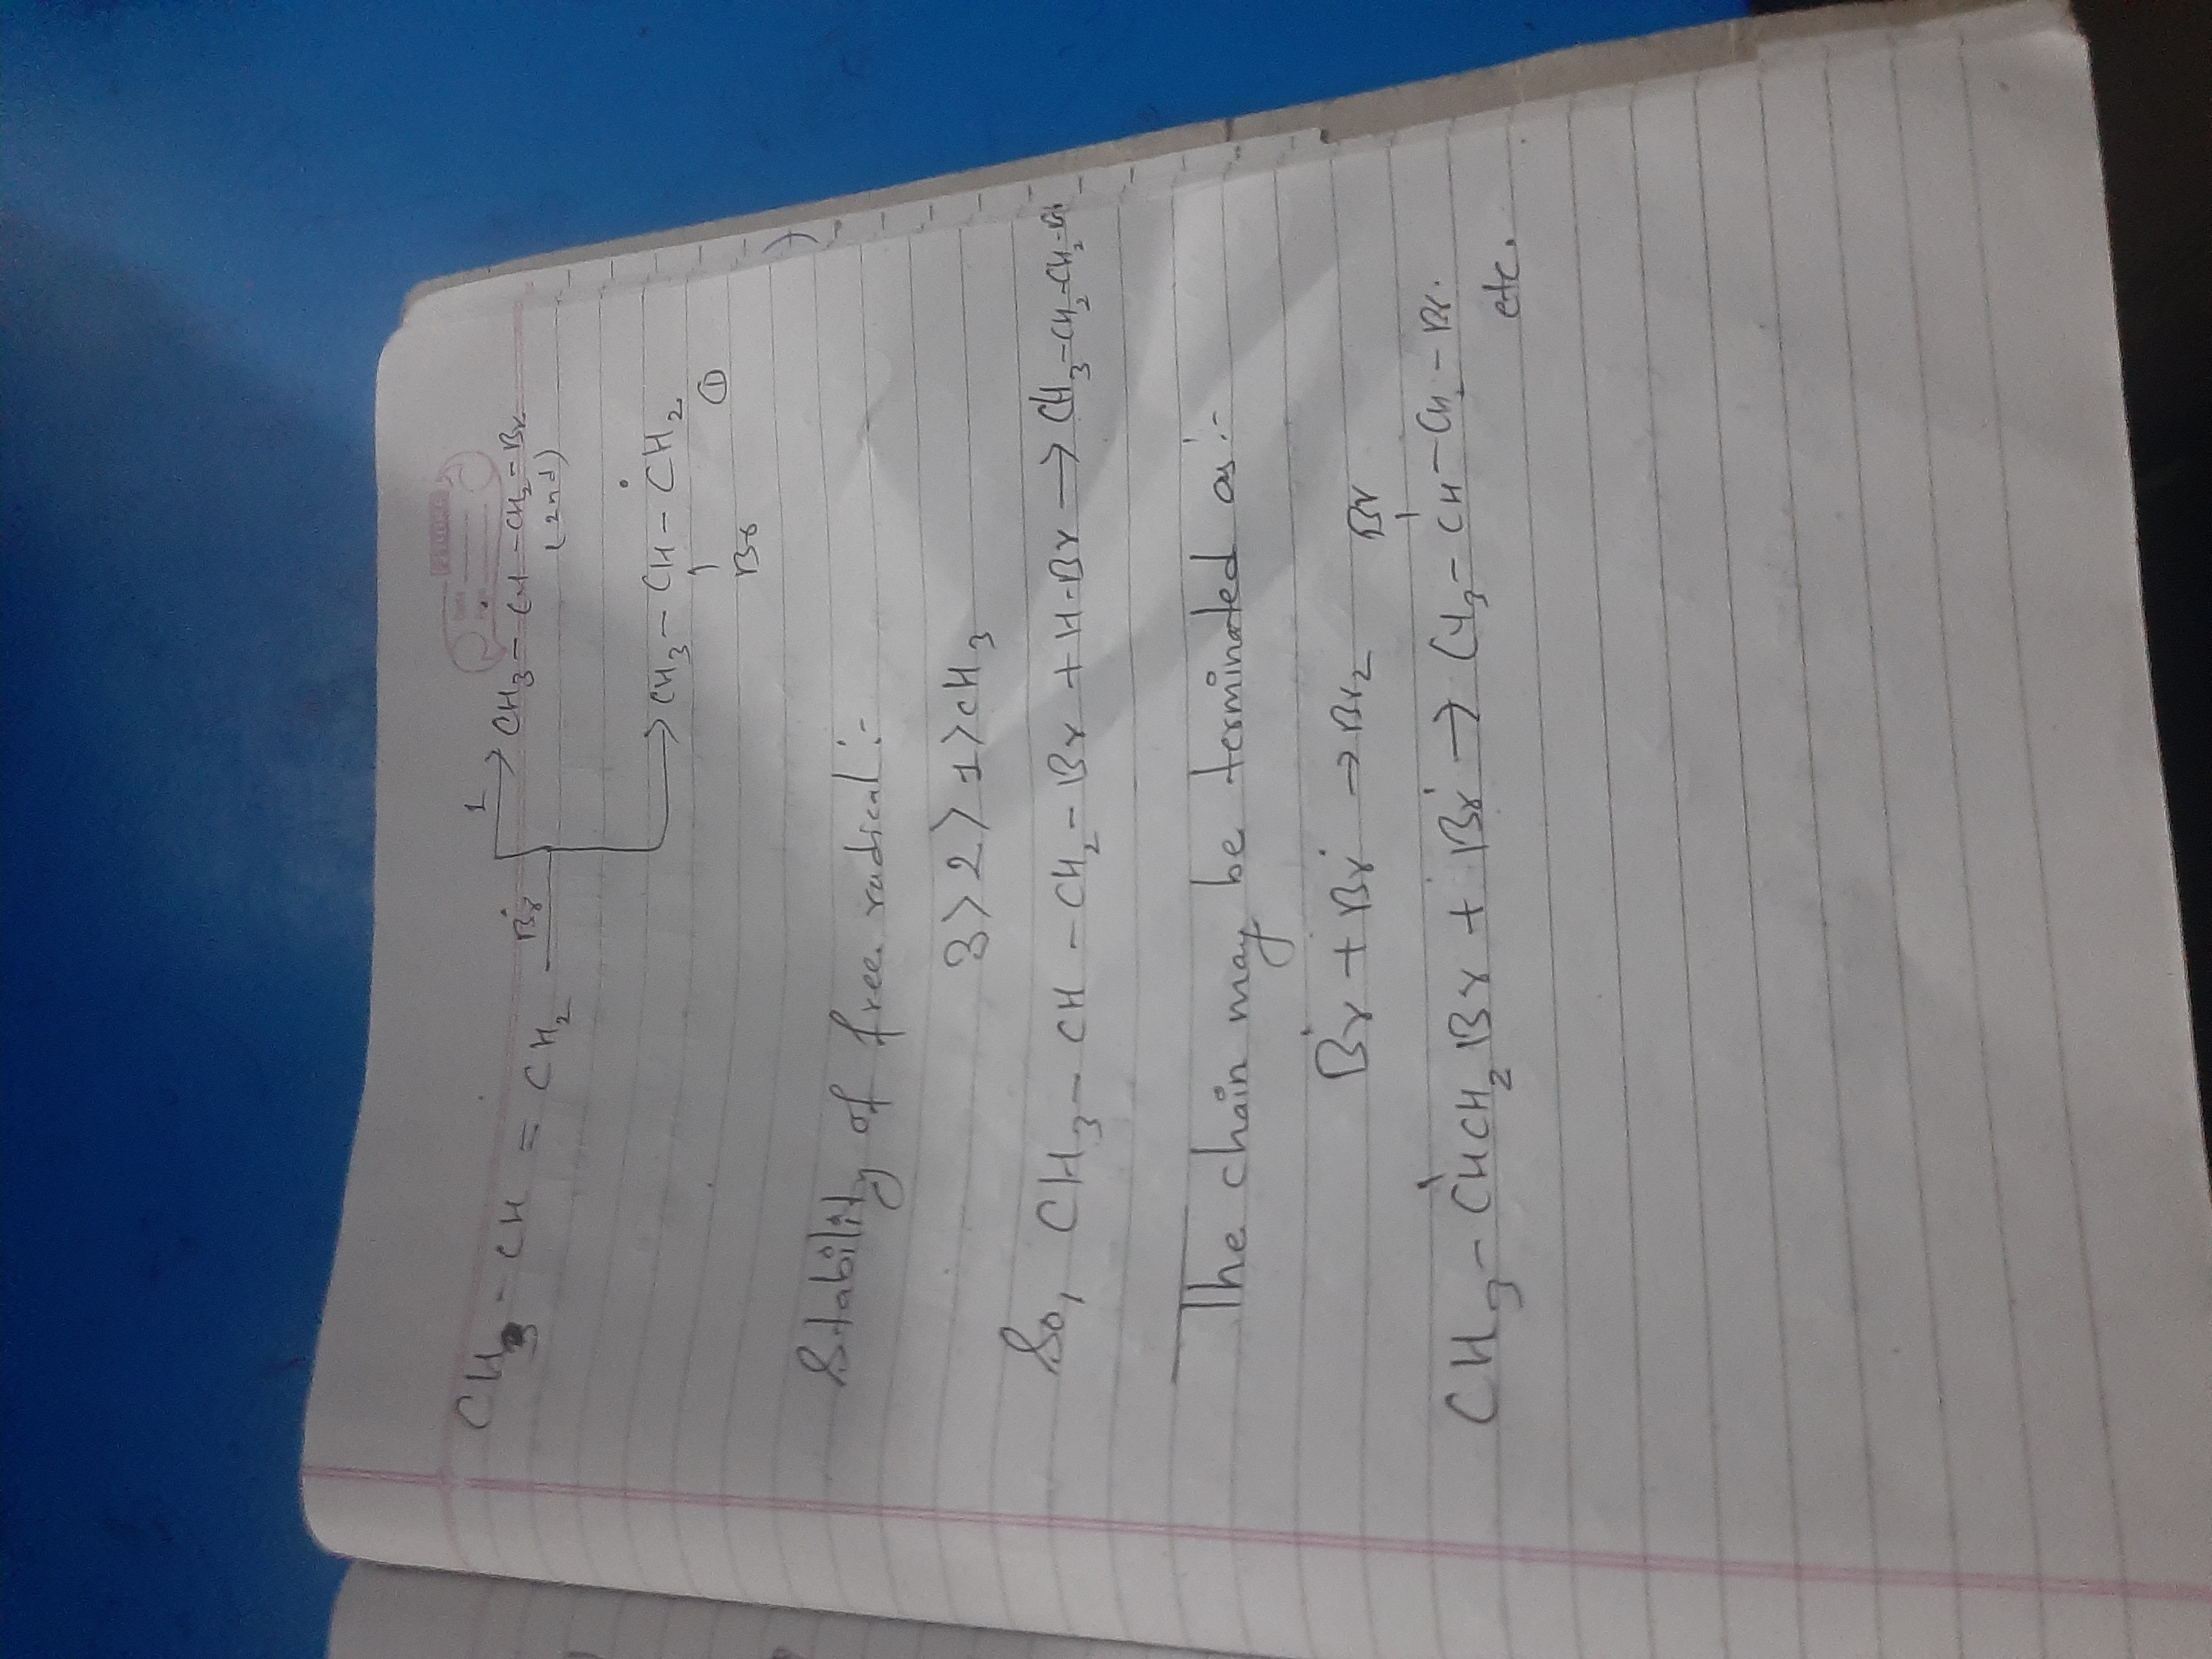 1
→ CH₃ - CH - CH₂ - Br
(2nd)
CH₃ - CH = CH₂ Ḃr
→ CH₃ - CH - ĊH₂
Br ①
Stability of free radical :-
3 > 2 > 1 > CH₃
So, CH₃ - CH - CH₂ - Br + H-Br → CH₃ - CH₂ - CH₂ - Br
The chain may be terminated as :-
Ḃr + Ḃr → Br₂
Br
CH₃ - ĊHCH₂Br + Ḃr → CH₃ - CH - CH₂ - Br.
etc.